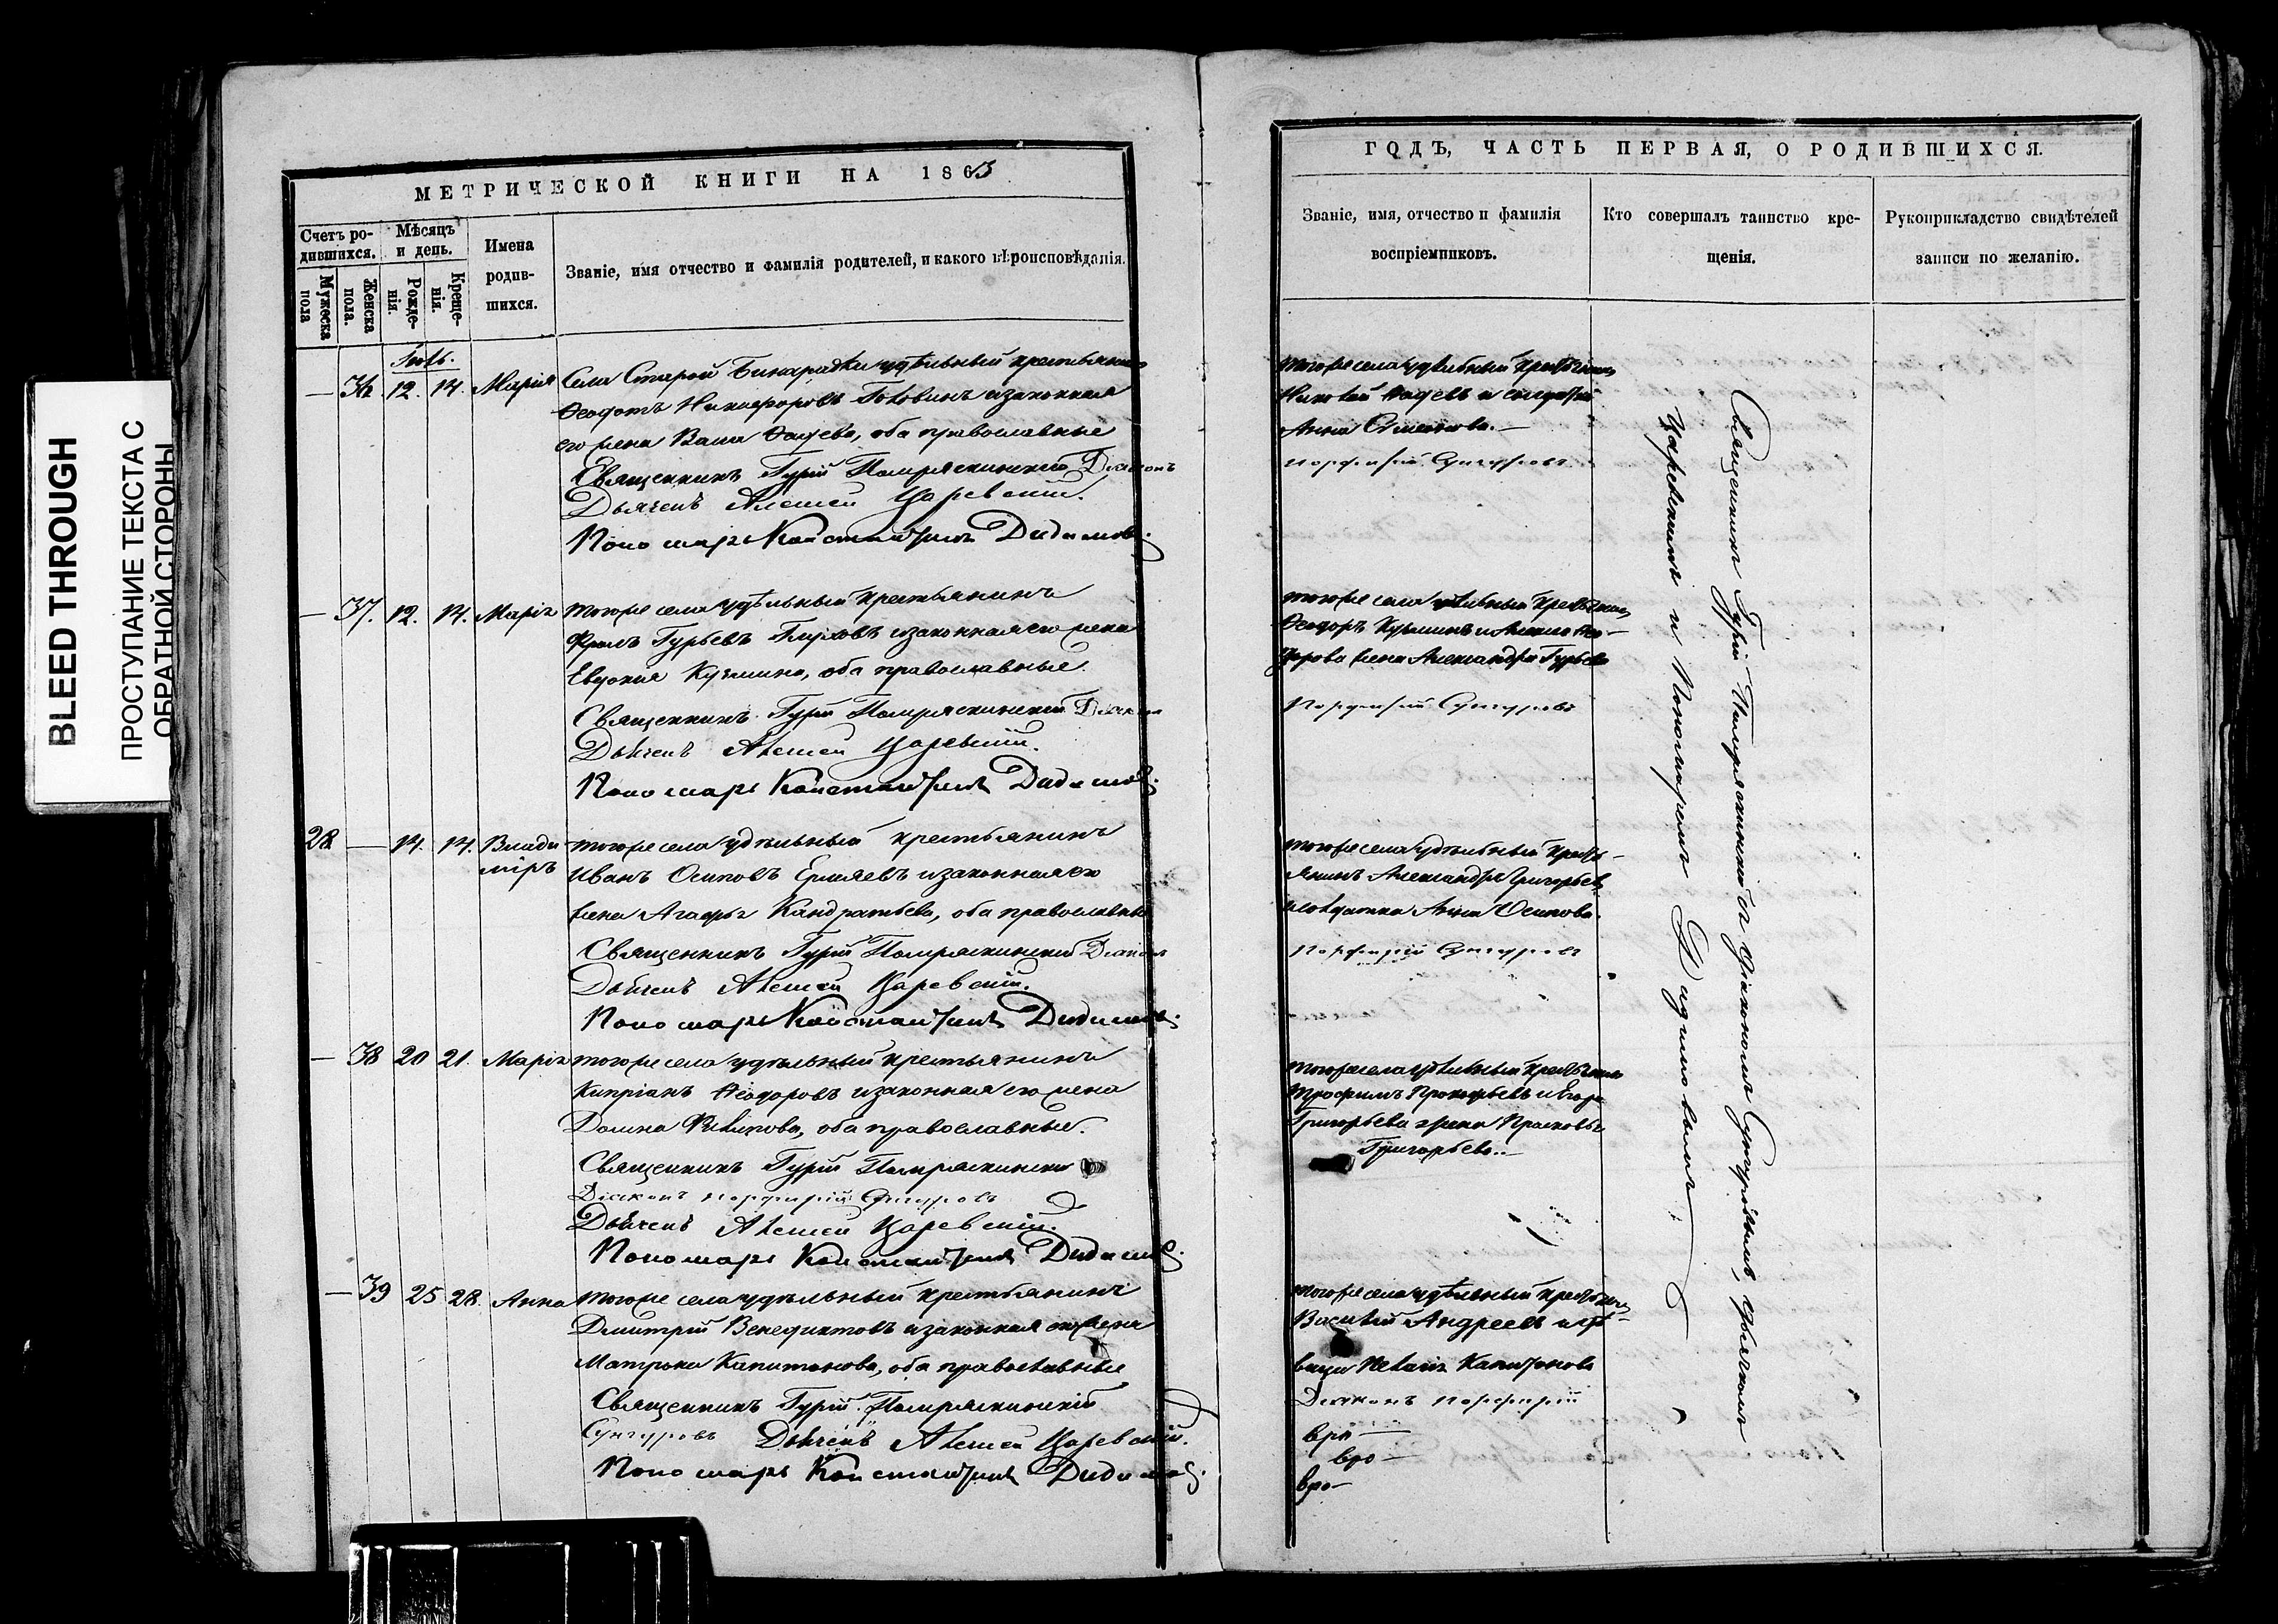 BLEED THROUGH
ПРОСТУПАНИЕ ТЕКСТА С
ОБРАТНОЙ СТОРОНЫ
МЕТРИЧЕСКОЙ КНИГИ НА 1863
Счетъ ро-
дившихся.
Мѣсяцъ
и день.
Имена
родив-
шихся.
Званіе, имя отчество и фамилія родителей, и какого вѣроисповѣданія.
Мужеска
пола
Женска
пола.
Рожде-
нія.
Креще-
нія.
— 36. 12. 14. Марія Села Старой Бинарадки удѣльный крестьянинъ
Ѳеодотъ Никифоровъ Головинъ и законная
его жена Васа Фадѣева, оба православные
Священникъ Гурій Помряскинскій Діаконъ
Дьячекъ Алексей Царевскій.
Пономарь Константинъ Дидимовъ.
— 37. 12. 14. Марія тогоже села удѣльный крестьянинъ
Фролъ Гурьевъ Глуховъ и законная его жена
Евдокия Кузмина, оба православные
Священникъ Гурій Помряскинскій Діаконъ
Дьячекъ Алексей Царевскій.
Пономарь Константинъ Дидимовъ.
28 — 14. 14. Влади
міръ
тогоже села удѣльный крестьянинъ
Иванъ Осиповъ Ермяевъ и законная его
жена Агафья Кандратьева, оба православные
Священникъ Гурій Помряскинскій Діаконъ
Дьячекъ Алексей Царевскій.
Пономарь Константинъ Дидимовъ.
— 38 20 21. Марія тогоже села удѣльный крестьянинъ
Кипріанъ Ѳеодоровъ и законная его жена
Домна Филипова, оба православные.
Священникъ Гурій Помряскинскій
Діаконъ Порфирій Сунгуровъ
Дьячекъ Алексей Царевскій.
Пономарь Константинъ Дидимовъ.
— 39 25 28. Анна тогоже села удѣльный крестьянинъ
Дмитрій Венедиктовъ и законная его жена
Матрона Капитонова, оба православные
Священникъ Гурій Помряскинскій
Сунгуровъ Дьячекъ Алексей Царевскій.
Пономарь Константинъ Дидимовъ.
ГОДЪ, ЧАСТЬ ПЕРВАЯ, О РОДИВШИХСЯ.
Званіе, имя, отчество и фамилія
воспріемниковъ.
Кто совершалъ таинство кре-
щенія.
Рукоприкладство свидѣтелей
записи по желанію.
тогоже села удѣльный крестьянинъ
Николай Фадеевъ и
Анна
Порфирій Сунгуровъ
тогоже села удѣльный крестьянинъ
Ѳеодоръ Кузминъ и
жена Александра Гурьева
Порфирій Сунгуровъ
тогоже села удѣльный кресть-
янинъ Александръ Григорьевъ
и солдатка Анна Осипова.
Порфирій Сунгуровъ
тогоже села удѣльный крестьянинъ
Трофимъ Прокофьевъ и Егора
Григорьева жена Прасковья
Григорьева.
тогоже села удѣльный крестьянинъ
Василій Андреевъ и дѣ-
вица Пелагія Капитонова
Діаконъ Порфирій
вра—
вро—
вро—
Священникъ Гурій Помряскинскій съ діакономъ Сунгуровымъ, дьячкомъ
Царевскимъ и Пономаремъ Дидимовымъ.